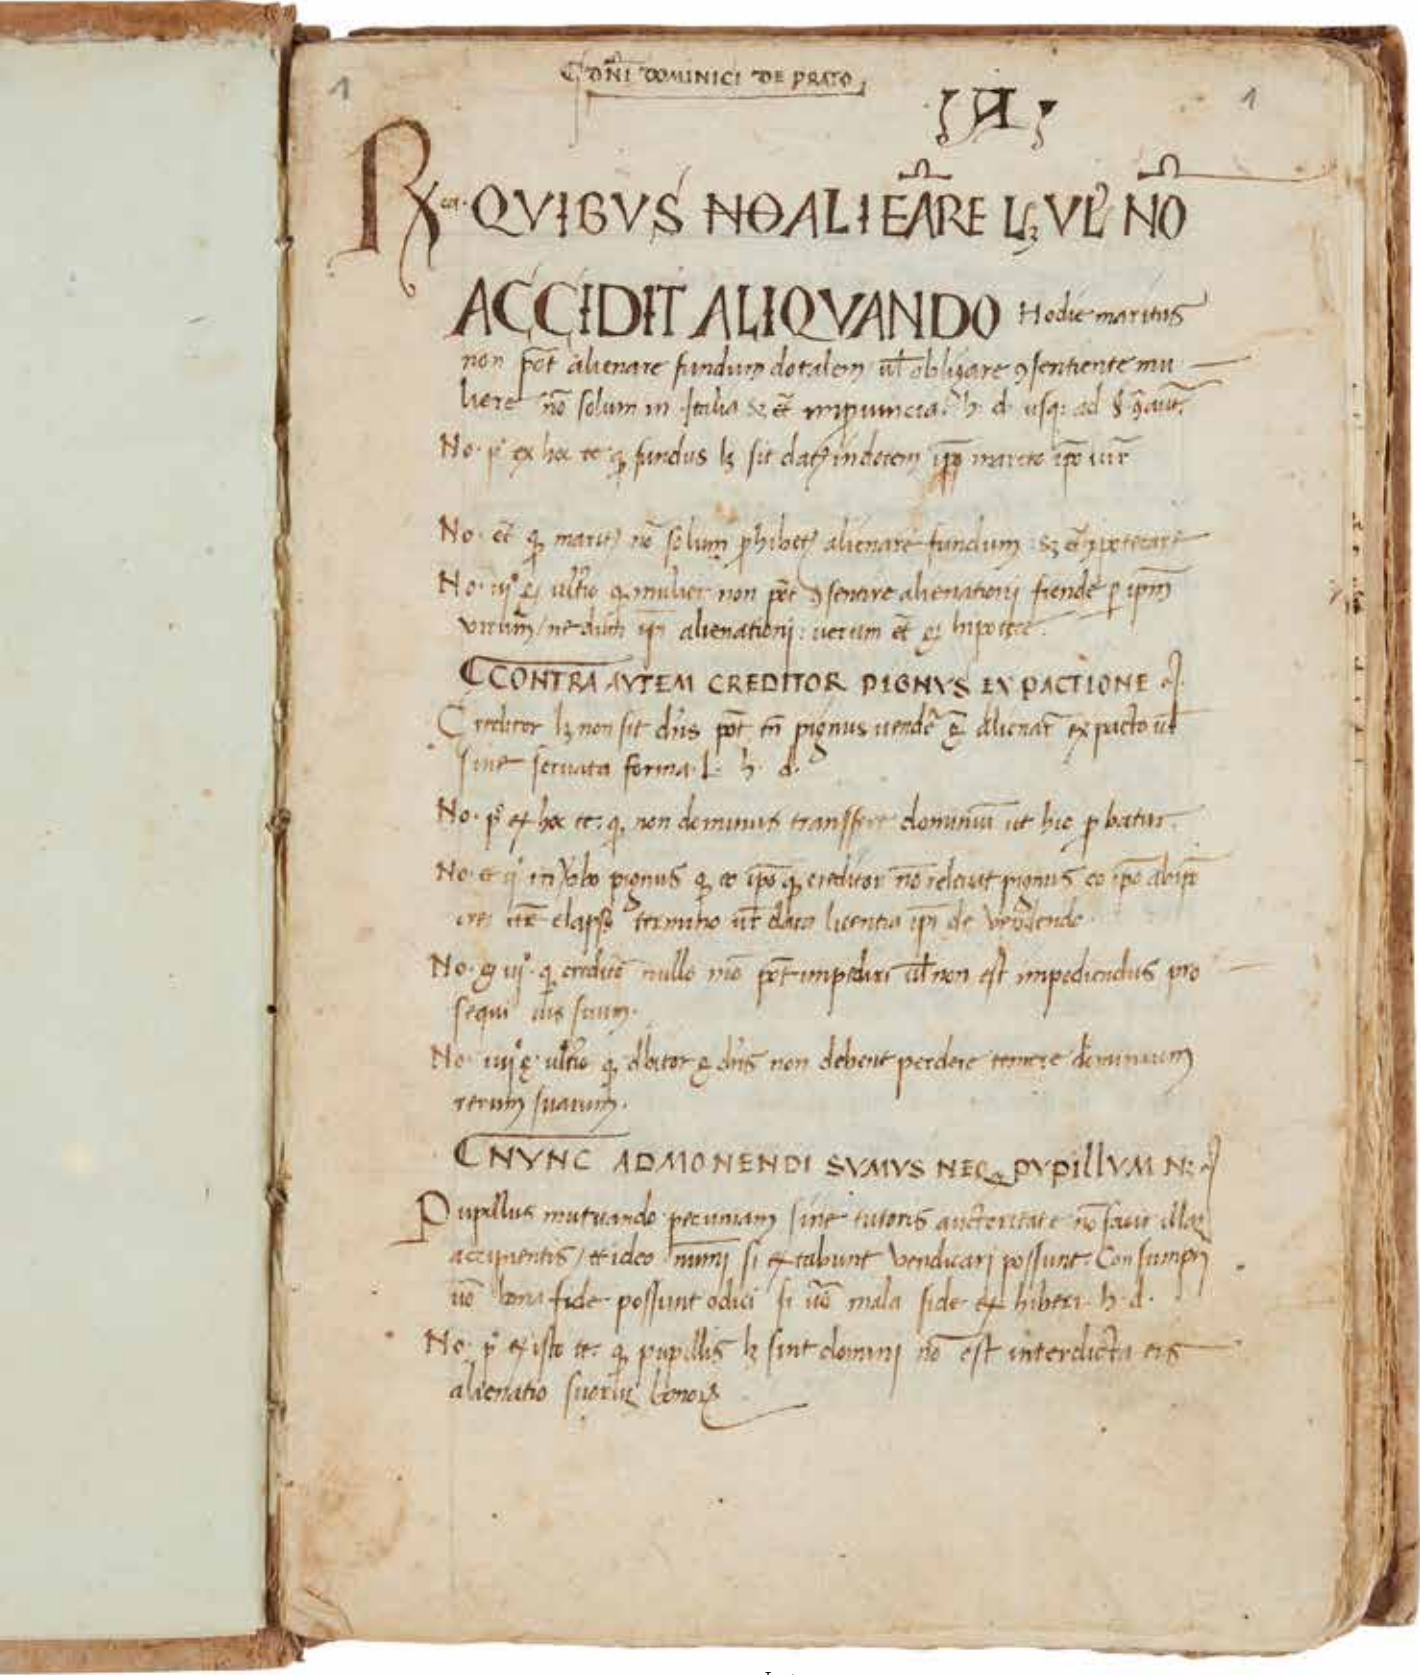 DÑI DOMINICI DE PRATO
1
1
A
Rca. QVIBVS NO ALIEARE LZ VL NO
ACCIDIT ALIQVANDO Hodie maritus
non pōt alienare fundum dotalem ul obligare ꝯsentiente mu
liere nō solum in Italia sz et̄ h. d. usq; ad §
No. p° ex hoc te. ꝙ fundus lz sit datꝰ in dotem ipo marito
No. et̄ ꝙ maritꝰ nō solum ꝓhibetꝰ alienare fundum sz et̄ ypotecare
No. iij° ultio ꝙ mulier non pōt ꝯsentire alienationj fiende ꝑ ipm
virum / nedum ipi alienationj: uerum et̄
CONTRA AVTEM CREDITOR PIGNVS EX PACTIONE
Creditor lz non sit dn̄s pōt tn̄ pignus uendē alienar̄ ex pacto ul
siue seruata forma. l. h. d.
No. p° ex hoc te: ꝙ non dominus transffert dominiū ut hic ꝓbatur.
No. pignus ꝙ eo ipo ꝙ creditor nō pignus eo ipo
elapso termino data licentia ipi de vendendo.
No. iij°. ꝙ creditō nullo mō pōt impediri ul non est impediendus pro
sequi ius suum.
No. iiij° ultio ꝙ dbitor dn̄s non debent perdere temere dominium
rerum suarum.
NVNC ADMONENDI SVMVS NEQ PVPILLVM N
Pupillus mutuando pecuniam sine tutoris auctoritate nō facit illaꝝ
accipientis / et ideo nūmj si extabunt vendicari possunt. Consumptj
uō bona fide possunt ꝯdici si uō mala fide exhiberi. h. d.
No. p° ex isto te: ꝙ pupillis lz sint dominj nō est interdicta eis
alienatio suoꝝ bonoꝝ